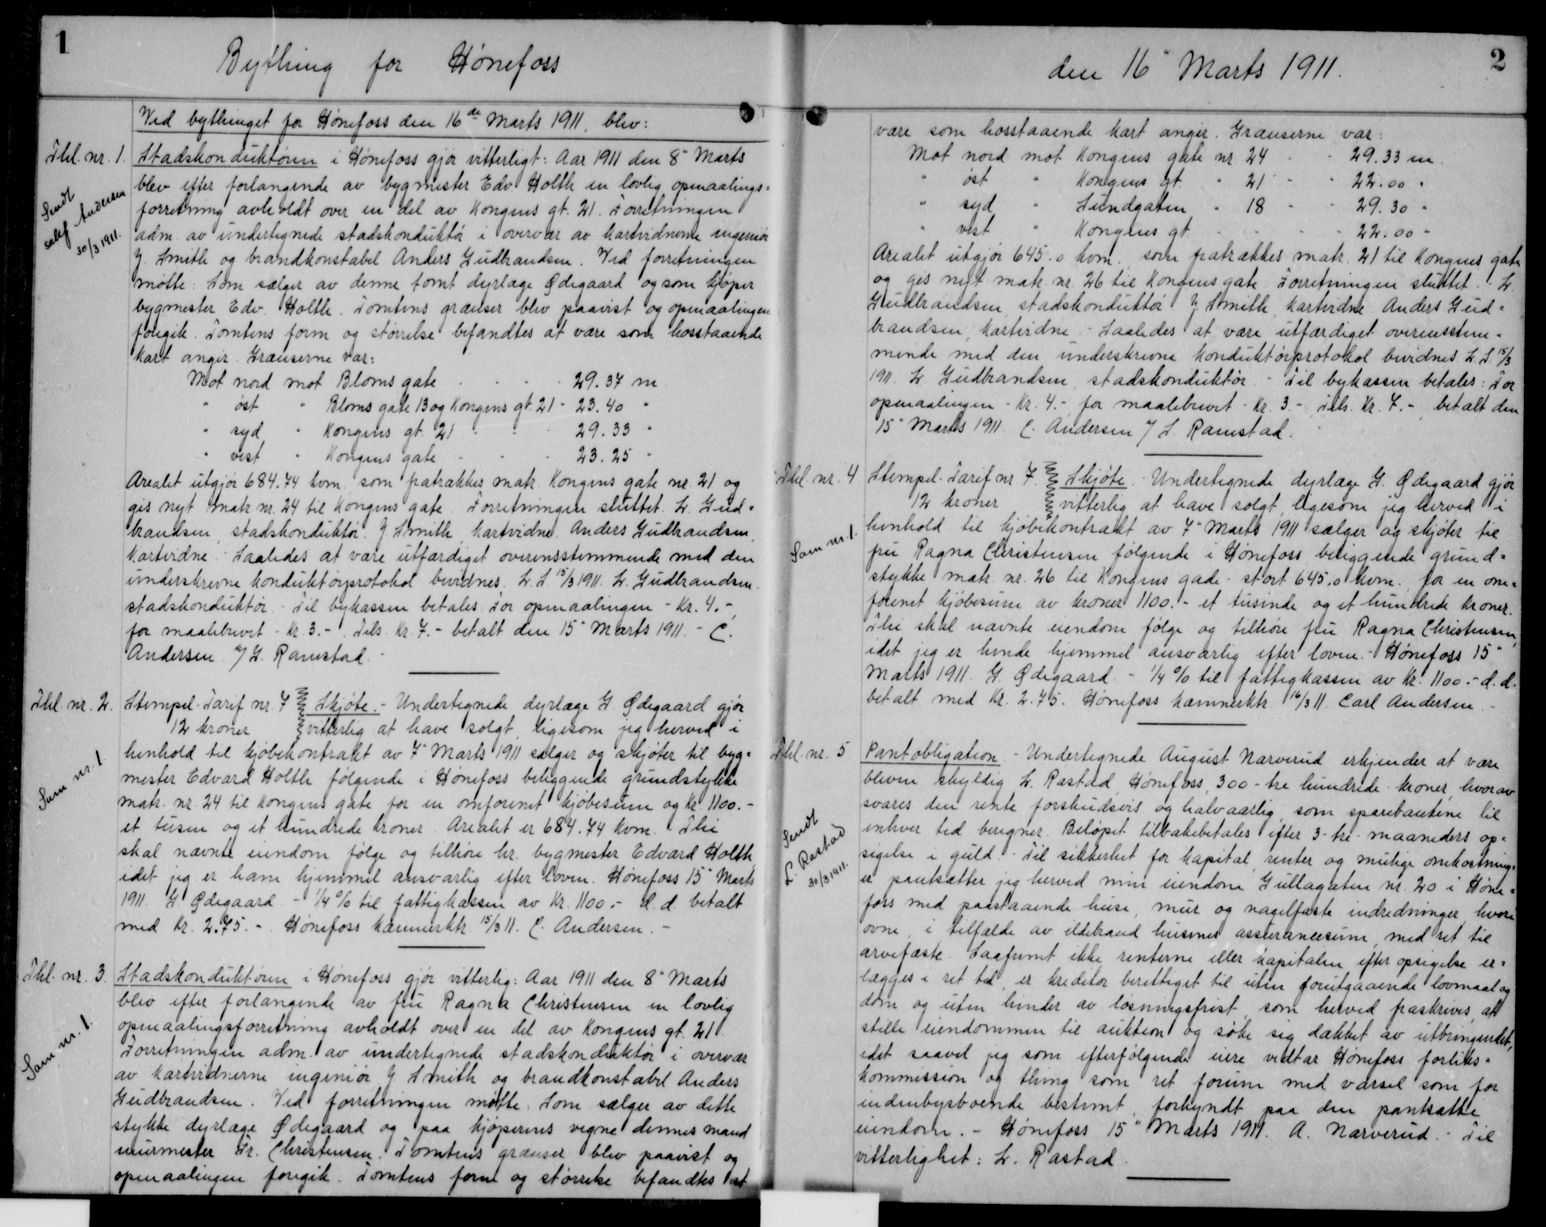 1
Bything for Hønefoss
Ved bythinget for Hønefoss den 16de Marts 1911. blev:
Thl. nr. 1. Stadskonduktøren i Hønefoss gjør vitterligt: Aar 1911 den 8" Marts
blev efter forlangende av bygmester Edv Holth en lovlig opmaalings=
Sendt
sakf Andersen
30/3 1911.
forretning avholdt over en del av Kongens gt. 21. Forretningen
adm. av undertegnede stadskonduktør i overvær av kartvidnerne ingeniør
Y. Smith og brandkonstabel Anders Gudbrandsen. Ved forretningen
møtte: Som sælger av denne tomt dyrlæge Ødegaard og som kjøper
bygmester Edv. Holth. Tomtens grænser blev paavist og opmaalingen
foregik. Tomtens form og størrelse befandtes at være som hosstaaende
kart angir. Grænserne var:
Mot nord mot Bloms gate - - - 29.37 m
" øst " Bloms gate 13 og Kongens gt. 21 - 23.40 "
" syd " Kongens gt. 21 - - - 29.33 "
" vest " Kongens gate - - - 23.25 "
Arealet utgjør 684.74 kvm. som fratrækkes matr. Kongens gate nr. 21 og
gis nyt matr. nr. 24 til Kongens gate. Forretningen sluttet. L. Gud=
brandsen, stadskonduktør. Y. Smith, kartvidne. Anders Gudbrandsen,
kartvidne. Saaledes at være utfærdiget overensstemmende med den
underskrevne konduktørprotokol bevidnes. L. S. 15/3 1911. L. Gudbrandsen
stadskonduktør. - Til bykassen betales: For opmaalingen - Kr. 4.-,
for maalebrevet - Kr. 3.-. Tils. Kr. 7.- betalt den 15" Marts 1911. - C.
Andersen. / L. Ramstad. -
Thl. nr. 2. Stempel-Tarif nr. 7 Skjøte. - Undertegnede dyrlæge G. Ødegaard gjør
12 kroner vitterlig at have solgt, ligesom jeg herved i
Sam nr. 1.
henhold til kjøbekontrakt av 7" Marts 1911 sælger og skjøter til byg=
mester Edvard Holth følgende i Hønefoss beliggende grundstykke
matr. nr. 24 til Kongens gate for en omforenet kjøbesum og kr. 1100.-
et tusen og et hundrede kroner. Arealet er 684.74 kvm. Thi
skal nævnte eiendom følge og tilhøre hr. bygmester Edvard Holth,
idet jeg er ham hjemmel ansvarlig efter loven. Hønefoss 15" Marts
1911. G. Ødegaard. - 1/4 % til fattigkassen av kr. 1100.- d. d. betalt
med kr. 2.75. - Hønefoss kæmnerktr. 15/3 11. C. Andersen. -
Thl. nr. 3. Stadskonduktøren i Hønefoss gjør vitterlig: Aar 1911 den 8" Marts
blev efter forlangende av fru Ragna Christensen en lovlig
Sam nr. 1.
opmaalingsforretning avholdt over en del av Kongens gt. 21.
Forretningen adm. av undertegnede stadskonduktør i overvær
av kartvidnerne ingeniør Y. Smith og brandkonstabel Anders
Gudbrandsen. Ved forretningen møtte: Som sælger av dette
stykke dyrlæge Ødegaard og paa kjøperens vegne dennes mand
murmester Fr. Christensen. Tomtens grænser blev paavist og
opmaalingen foregik. Tomtens form og størrelse befandtes at
2
den 16" Marts 1911.
være som hosstaaende kart angir. Grænserne var:
Mot nord mot Kongens gate nr 24 - - 29.33 m.
" øst " Kongens gt. " 21 - - 22.00 "
" syd " Lundgaten - 18 - - 29.30 "
" vest " Kongens gt. - - - - 22.00 "
Arealet utgjør 645.0 kvm. som fratrækkes matr. 21 til Kongens gate
og gis nyt matr. nr. 26 til Kongens gate. Forretningen sluttet. L.
Gudbrandsen, stadskonduktør. Y. Smith, kartvidne. Anders Gud=
brandsen, kartvidne. - Saaledes at være utfærdiget overensstem=
mende med den underskrevne konduktørprotokol bevidnes L. S. 15/3
1911. L. Gudbrandsen, stadskonduktør. - Til bykassen betales: For
opmaalingen - Kr. 4.-, for maalebrevet - Kr. 3.-, Tils. Kr. 7.-, betalt den
15" Marts 1911. C. Andersen / L. Ramstad.
Thl. nr. 4 Stempel-Tarif nr 7. Skjøte. - Undertegnede dyrlæge G. Ødegaard gjør
12 kroner vitterlig at have solgt, ligesom jeg herved i
Sam nr. 1.
henhold til kjøbekontrakt av 7" Marts 1911 sælger og skjøter til
fru Ragna Christensen følgende i Hønefoss beliggende grund=
stykke matr. nr. 26 til Kongens gade - stort 645,0 kvm. for en om=
forenet kjøbesum av kroner 1100.- et tusinde og et hundrede kroner.
Thi skal nævnte eiendom følge og tilhøre fru Ragna Christensen,
idet jeg er hende hjemmel ansvarlig efter loven. - Hønefoss 15"
Marts 1911. G. Ødegaard. - 1/4 % til fattigkassen av kr. 1100.- d. d.
betalt med kr. 2.75. Hønefoss kæmnerktr. 16/3 11. Carl Andersen. -
Thl. nr. 5 Pantobligation. - Undertegnede August Narverud erkjender at være
bleven skyldig L. Rastad, Hønefoss, 300 - tre hundrede - kroner, hvorav
svares den rente forskudsvis og halvaarlig, som sparebankene til
Sendt
L. Rastad
30/3 1911.
enhver tid beregner. Beløpet tilbakebetales efter 3 - tre - maaneders op=
sigelse i guld. Til sikkerhet for kapital, renter og mulige omkostning=
er pantsætter jeg herved min eiendom Gullagaten nr. 20 i Høne=
foss med paastaaende huse, mur og nagelfaste indredninger, hvori
ovne, i tilfælde av ildebrand husenes assurancesum, med ret til
arvefæste. Saafremt ikke renterne eller kapitalen efter opsigelse er=
lægges i ret tid, er kreditor berettiget til uten forutgaaende lovmaal og
dom og uten hinder av løsningsfrist, som herved fraskrives, at
stille eiendommen til auktion og søke sig dækket av utbringendet,
idet saavel jeg som efterfølgende eiere vedtar Hønefoss forliks=
kommission og thing som ret forum med varsel som for
indenbysboende bestemt, forkyndt paa den pantsatte
eiendom. - Hønefoss 15" Marts 1911. A. Narverud. - Til
vitterlighet: L. Rastad.